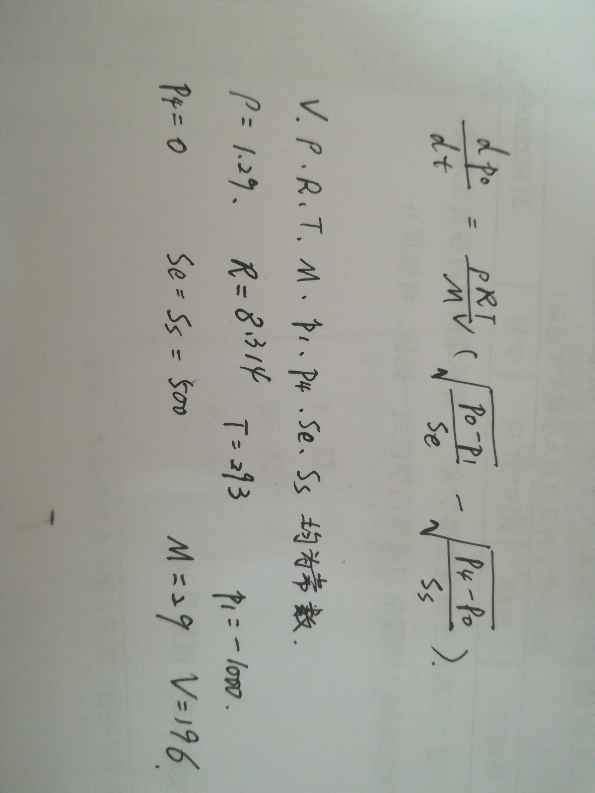 dp₀/dt = ρRT/MV (√(p₀-p₁/Se) - √(p₄-p₀/Ss)).
V. ρ. R. T. M. p₁. p₄. Se. Ss 均为常数.
ρ=1.29. R=8.314 T=293 p₁=-1000.
p₄=0 Se=Ss=500 M=29 V=196.